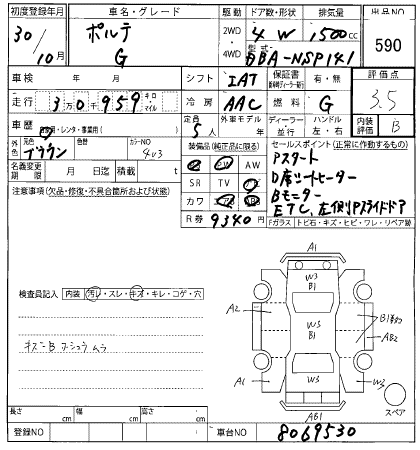 初度登録年月 車名・グレード 駆動 ドア数・形状 排気量 出品NO
30/10月 ポルテ G 2WD・4WD 4 W 1500cc 590
型式 DBA-NSP141
車検 年 月 シフト IAT 保証書 有・無 評価点 3.5
走行 3万0千959 キロ・マイル 冷房 AAC 燃料 G
車歴 自家用・レンタ・事業用( ) 定員 5人 外車モデル ディーラー・並行 ハンドル 左・右 内装評価 B
外色 元色 ブラウン 色替 カラーNO 4U3 装備品(純正品に限る) セールスポイント(正常に作動するもの)
名義変更期限 月 日迄 積載 t
注意事項(欠品・修復・不具合箇所および状態)
SR TV
カワ
R券 9340円
Pスタート
D席シートヒーター
Bモーター
ETC、左側Pスライドドア
Fガラス トビ石・キズ・ヒビ・ワレ・リペア跡
検査員記入 内装 汚レ・スレ・キズ・キレ・コゲ・穴
A1
W3
B1
A2
W3
B1
AB2
W3
A1
W3
AB1
スペア
長さ cm 幅 cm 高さ cm
登録NO 車台NO 8069530